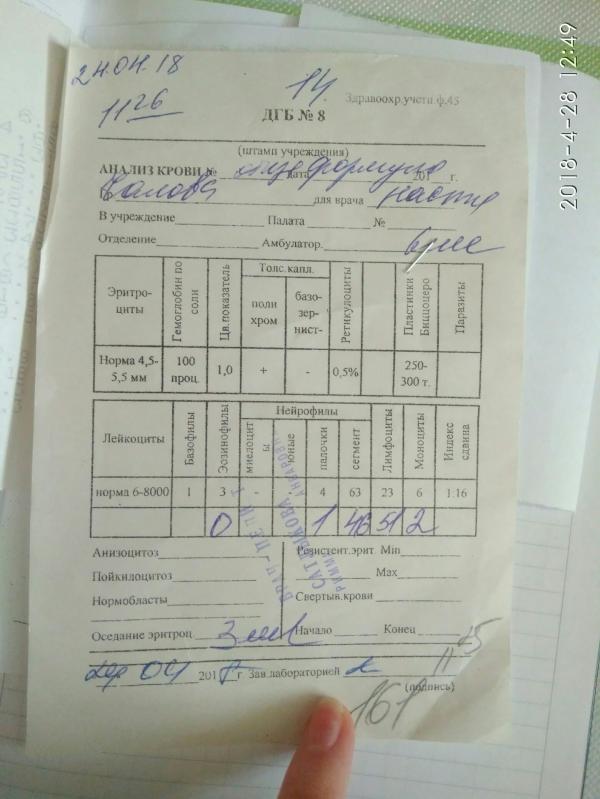 24.04.18
11 26
14.
Здравоохр.учетн ф.45
ДГБ № 8
(штамп учреждения)
АНАЛИЗ КРОВИ № дата формула 201 г.
для врача
В учреждение Палата №
Отделение Амбулатор.
Эритро-циты Гемоглобин по соли Цв.показатель Толс.капл. поли хром базо-зер-нист- Ретикулоциты Пластинки Биццоцеро Паразиты
Норма 4,5-5,5 мм 100 проц. 1,0 + - 0,5% 250-300 т.
Лейкоциты Базофилы Эозинофилы Нейрофилы миелоциты юные палочки сегмент Лимфоциты Моноциты Индекс сдвина
норма 6-8000 1 3 - 4 63 23 6 1:16
0 1 46 51 2
Анизоцитоз Резистент.эрит. Min
Пойкилоцитоз Max
Нормобласты Свертыв.крови
Оседание эритроц 3 мм Начало Конец
04 2018 г. Зав.лабораторией
(подпись)
161
ВРАЧ-ПЕ
САТЫБЕКОВА
2018-4-28 12:49